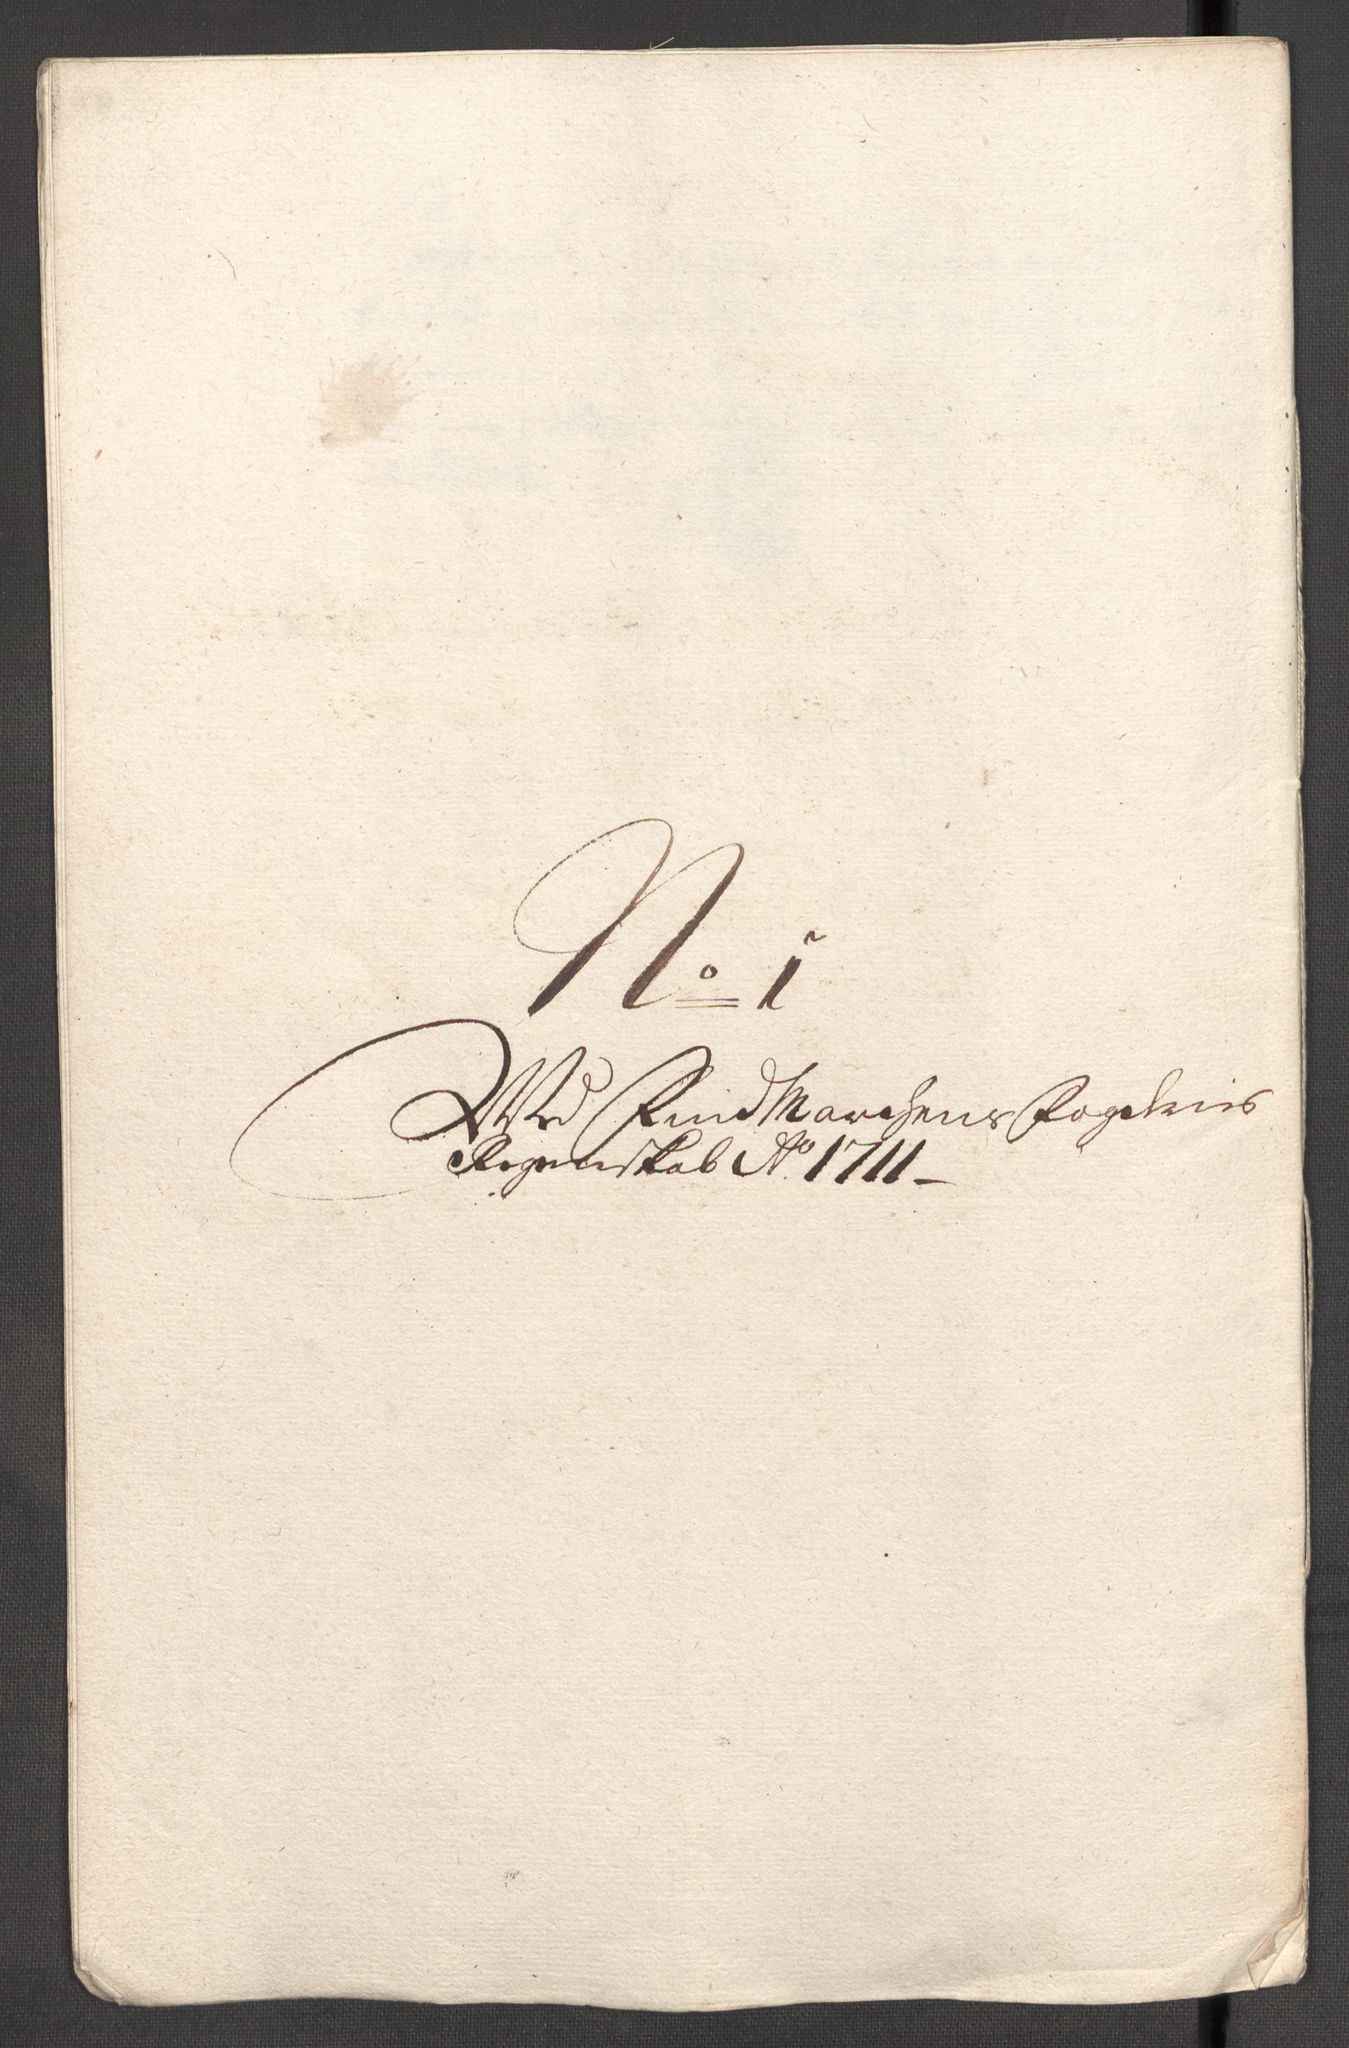 No 1
Wed FindMarchens Fogderies
Regenskab Ao 1711